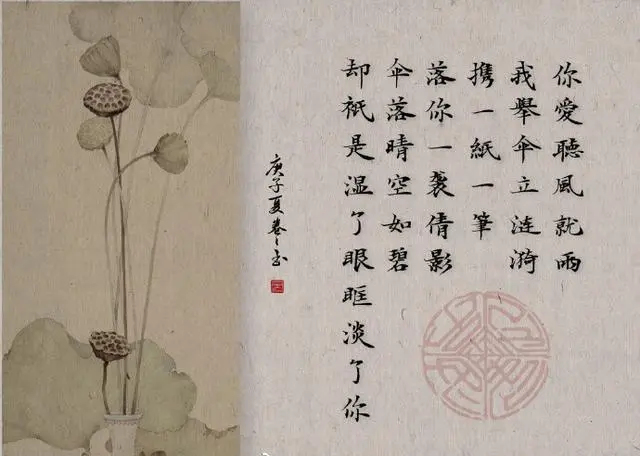 你愛聽風就雨
我舉伞立涟漪
携一紙一筆
落你一袭倩影
伞落晴空如碧
却衹是湿了眼眶淡了你
庚子夏